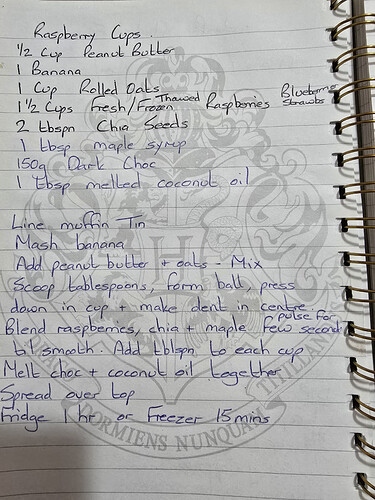 Raspberry Cups.
1/2 Cup Peanut Butter
1 Banana
1 Cup Rolled Oats
1 1/2 Cups Fresh/Frozen Thawed Raspberries Blueberries Strawbs
2 tbspn Chia Seeds
1 tbsp maple syrup
150g Dark Choc
1 tbsp melted coconut oil
Line muffin Tin
Mash banana
Add peanut butter + oats - Mix
Scoop tablespoons, form ball, press
down in cup + make dent in centre
Blend raspberries, chia + maple pulse for few seconds
til smooth. Add tblspn to each cup
Melt choc + coconut oil together
Spread over top
Fridge 1 hr or Freezer 15 mins
DORMIENS NUNQUAM TITILLANDUS